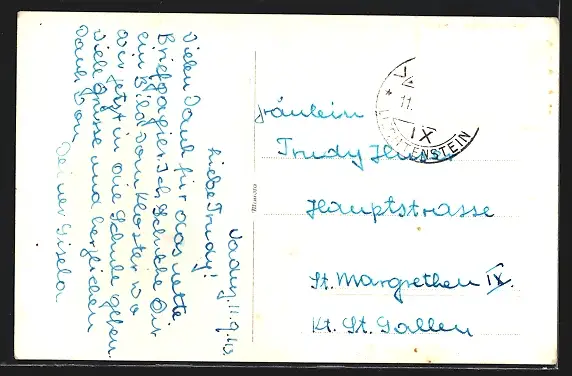 Vaduz, 11.9.
Liebe Trudy!
Vielen Dank für das nette
Briefpapier. Ich schicke Dir
ein Bild vom Kloster wo
wir jetzt in die Schule gehen.
Viele Grüsse und herzlichen
Dank von
Deiner Gisela
Fräulein
Trudy
Hauptstrasse
St. Margrethen IX.
Kt. St. Gallen
Va
* 11.
IX
LIECHTENSTEIN